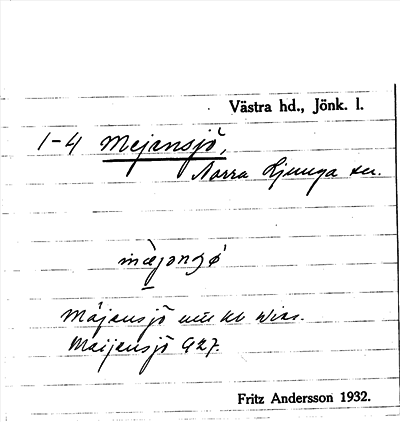 Västra hd., Jönk. l.
1-4 Mejensjö,
Norra Ljunga sn.
mæjənʃø
Mäjensjö
Meijensjö G27.
Fritz Andersson 1932.